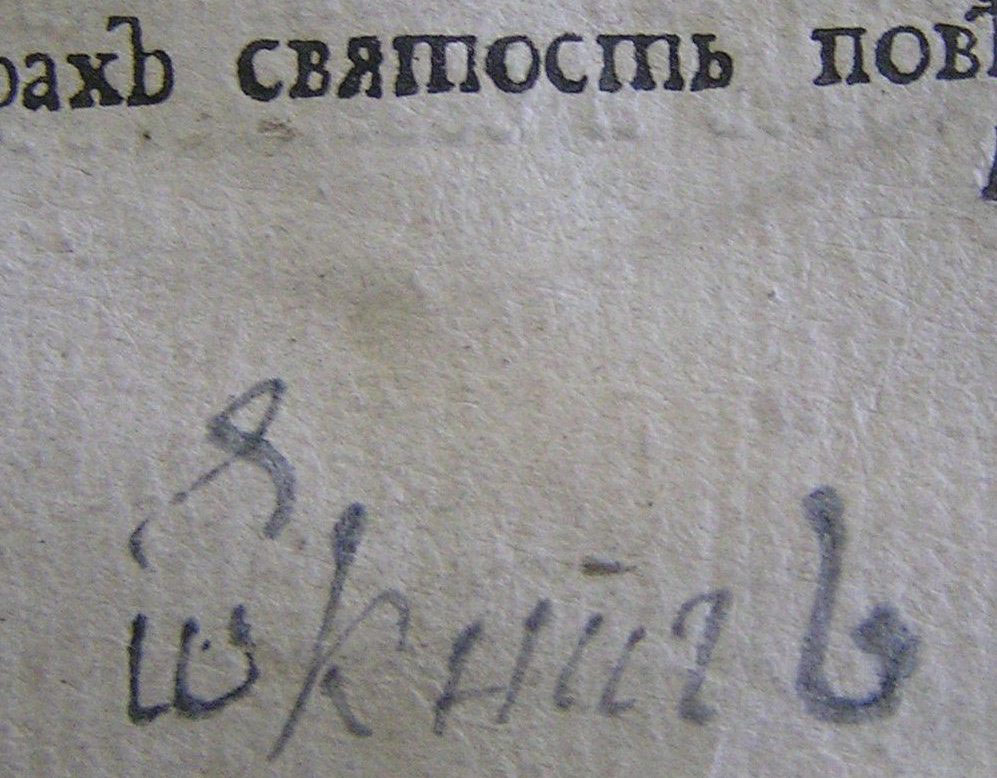 рахъ святость повѣ
ѿ книгъ